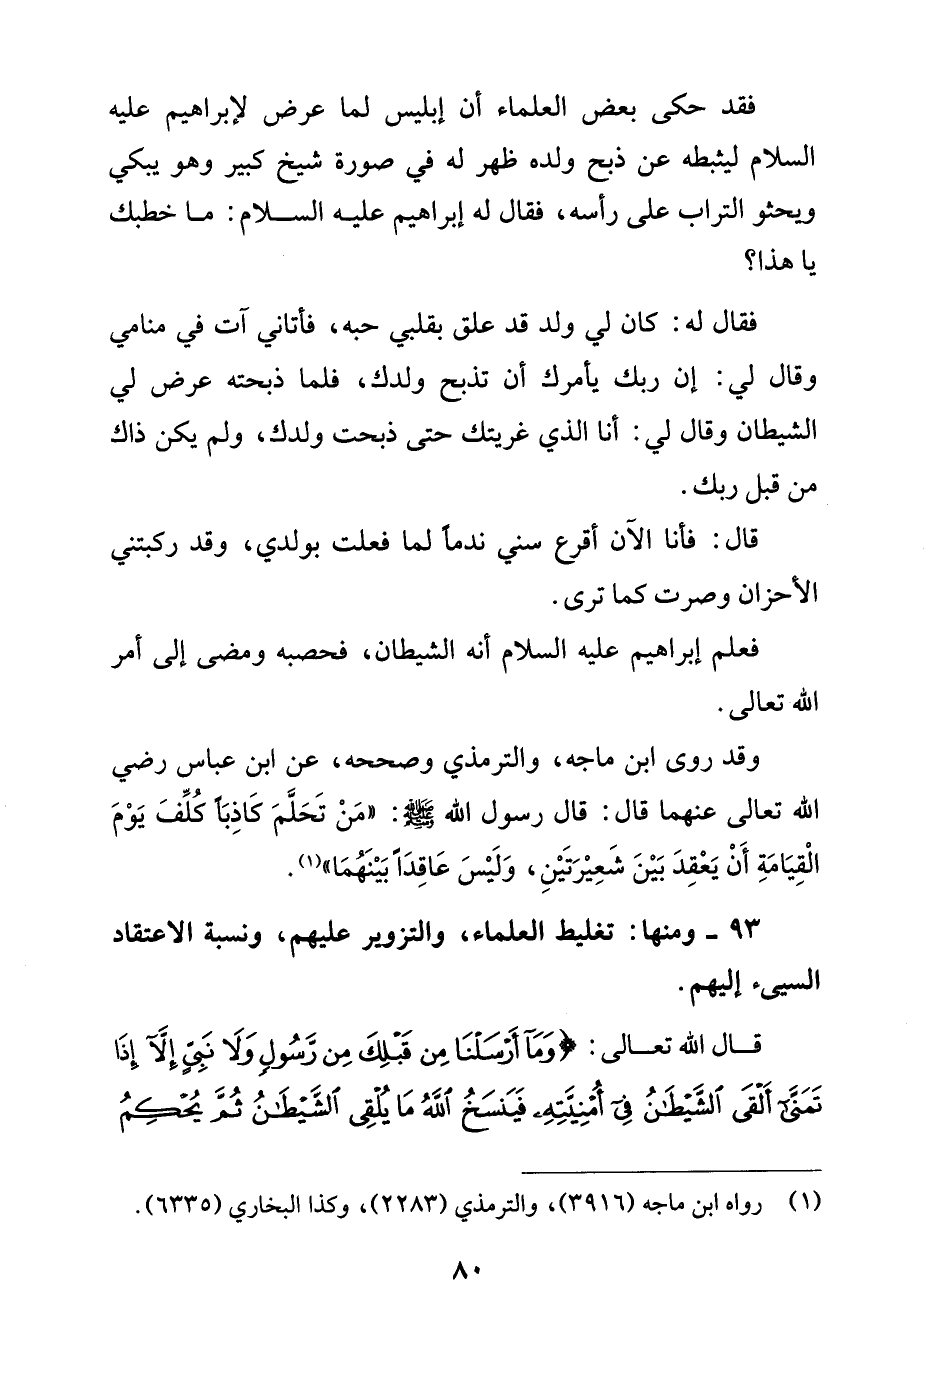 فقد حكى بعض العلماء أن إبليس لما عرض لإبراهيم عليه
السلام ليثبطه عن ذبح ولده ظهر له في صورة شيخ كبير وهو يبكي
ويحثو التراب على رأسه، فقال له إبراهيم عليه السلام: ما خطبك
يا هذا؟
فقال له: كان لي ولد قد علق بقلبي حبه، فأتاني آت في منامي
وقال لي: إن ربك يأمرك أن تذبح ولدك، فلما ذبحته عرض لي
الشيطان وقال لي: أنا الذي غريتك حتى ذبحت ولدك، ولم يكن ذاك
من قبل ربك.
قال: فأنا الآن أقرع سني ندماً لما فعلت بولدي، وقد ركبتني
الأحزان وصرت كما ترى.
فعلم إبراهيم عليه السلام أنه الشيطان، فحصبه ومضى إلى أمر
الله تعالى.
وقد روى ابن ماجه، والترمذي وصححه، عن ابن عباس رضي
الله تعالى عنهما قال: قال رسول الله ﷺ: «مَنْ تَحَلَّمَ كَاذِبَاً كُلِّفَ يَوْمَ
الْقِيَامَةِ أَنْ يَعْقِدَ بَيْنَ شَعِيْرَتَيْنِ، وَلَيْسَ عَاقِدَاً بَيْنَهُمَا»(١).
٩٣ ـ ومنها: تغليط العلماء، والتزوير عليهم، ونسبة الاعتقاد
السيىء إليهم.
قال الله تعالى: ﴿وَمَآ أَرْسَلْنَا مِن قَبْلِكَ مِن رَّسُولٍ وَلَا نَبِيٍّ إِلَّآ إِذَا
تَمَنَّىٰٓ أَلْقَى ٱلشَّيْطَٰنُ فِىٓ أُمْنِيَّتِهِۦ فَيَنسَخُ ٱللَّهُ مَا يُلْقِى ٱلشَّيْطَٰنُ ثُمَّ يُحْكِمُ
(١) رواه ابن ماجه (٣٩١٦)، والترمذي (٢٢٨٣)، وكذا البخاري (٦٦٣٥).
٨٠